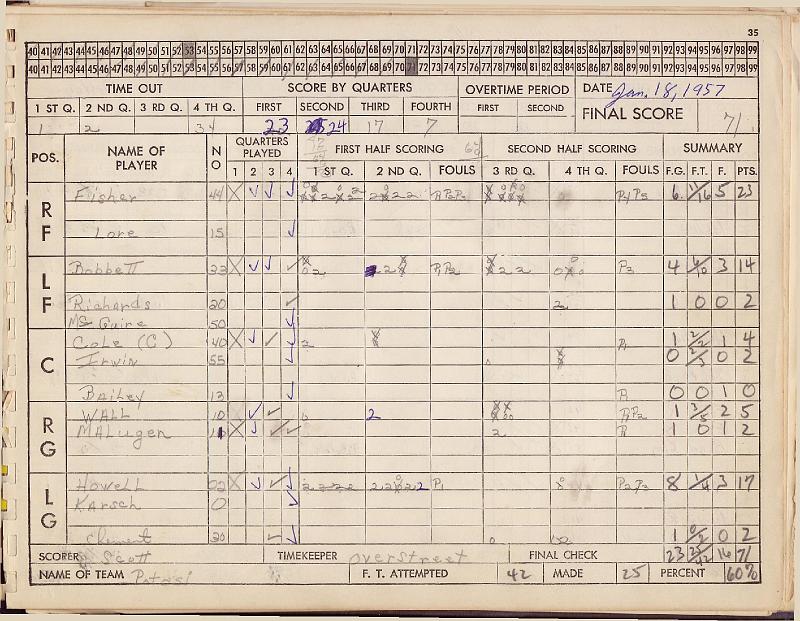 35
40 41 42 43 44 45 46 47 48 49 50 51 52 53 54 55 56 57 58 59 60 61 62 63 64 65 66 67 68 69 70 71 72 73 74 75 76 77 78 79 80 81 82 83 84 85 86 87 88 89 90 91 92 93 94 95 96 97 98 99
40 41 42 43 44 45 46 47 48 49 50 51 52 53 54 55 56 57 58 59 60 61 62 63 64 65 66 67 68 69 70 71 72 73 74 75 76 77 78 79 80 81 82 83 84 85 86 87 88 89 90 91 92 93 94 95 96 97 98 99
TIME OUT SCORE BY QUARTERS OVERTIME PERIOD DATE Jan. 18, 1957
1 ST Q. 2 ND Q. 3 RD Q. 4 TH Q. FIRST SECOND THIRD FOURTH FIRST SECOND FINAL SCORE 71
1 2 34 23 24 17 7
POS. NAME OF PLAYER NO QUARTERS PLAYED FIRST HALF SCORING SECOND HALF SCORING SUMMARY
1 2 3 4 1 ST Q. 2 ND Q. FOULS 3 RD Q. 4 TH Q. FOULS F.G. F.T. F. PTS.
RF Fisher 44 P1 P2 P3 P4 P5 6 11/16 5 23
Lore 15
LF Bobbett 22 P1 P2 P3 4 3 14
Richards 20 2 1 0 0 2
McGuire 50
C Cole (C) 40 2 P1 1 2/2 1 4
Irwin 55 0 0 2
Bailey 13 P1 0 0 1 0
RG WALL 10 2 P1 P2 1 3/5 2 5
MALugen 2 P1 1 0 1 2
LG Howell P1 P2 P3 8 1/4 3 17
Karsch 0
Clement 30 1 0/2 0 2
SCORER Scott TIMEKEEPER Overstreet FINAL CHECK 23 25/42 16 71
NAME OF TEAM Potosi F. T. ATTEMPTED 42 MADE 25 PERCENT 60%